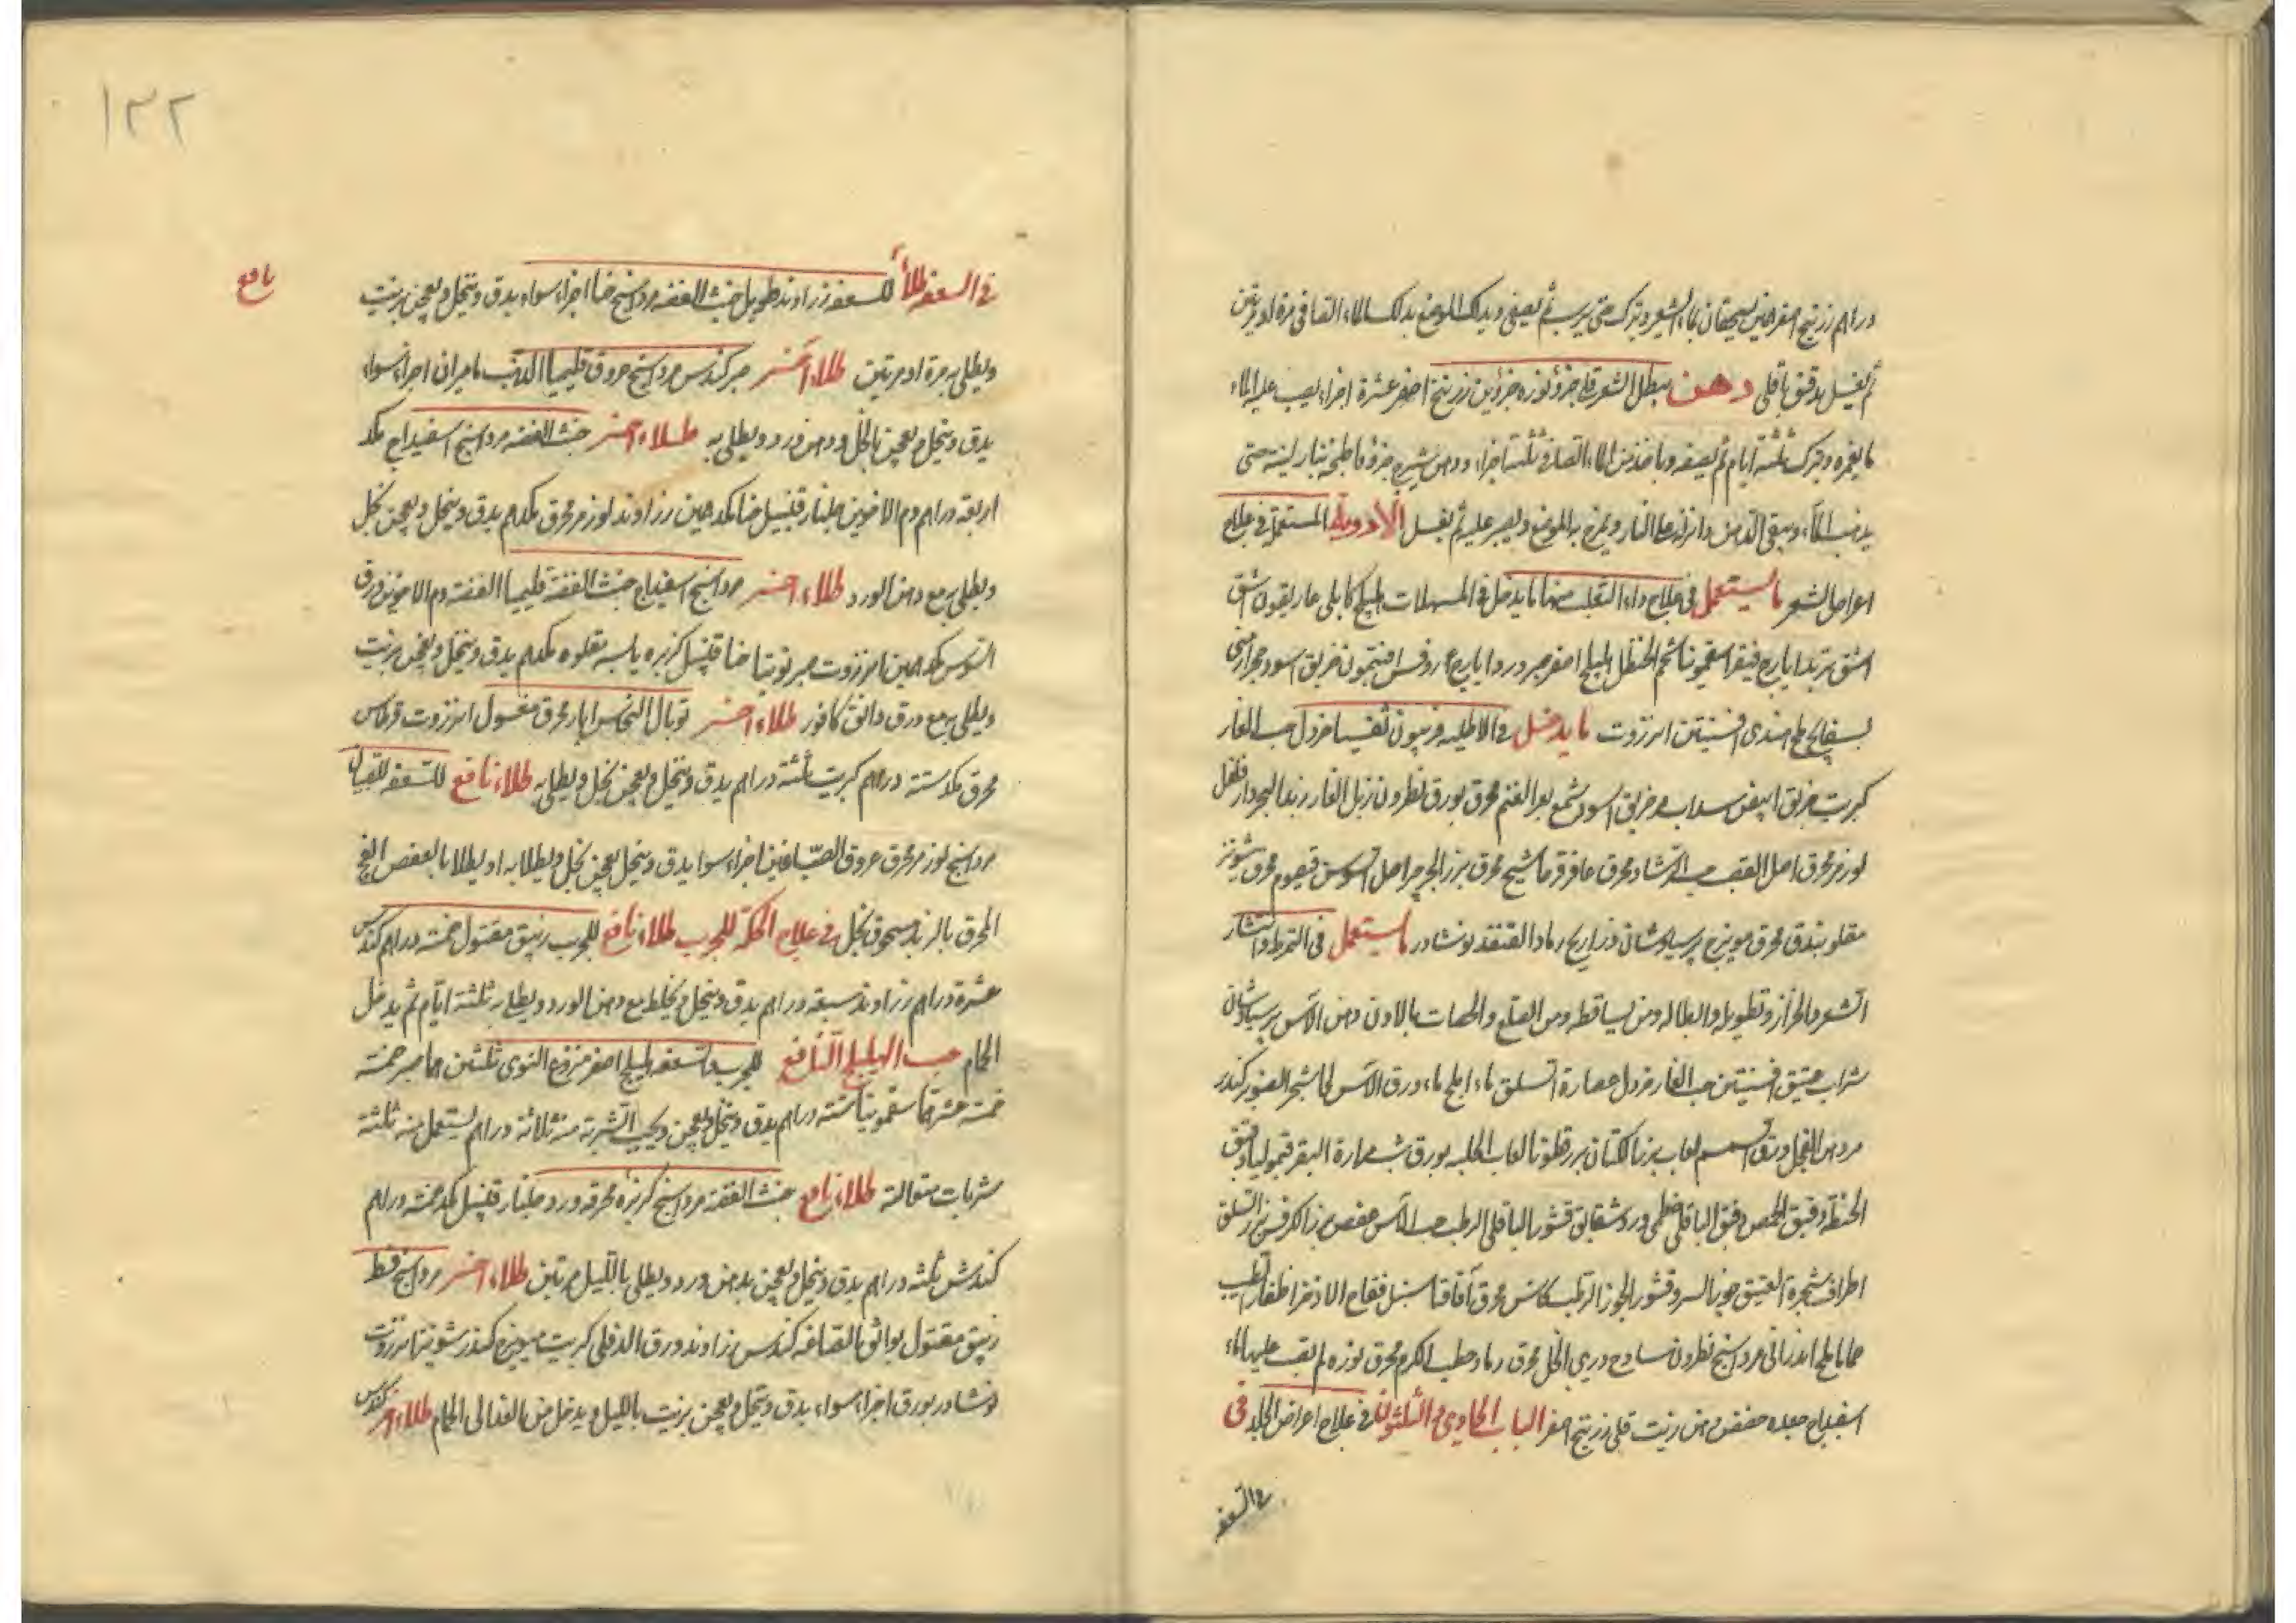 دراهم زرنيخ اصفر درهمين يسحقان بماء الشعير ويترك حتى يرسب ثم يصفى ويدلك الموضع بذلك الماء الصافى مرة او مرتين
ثم يغسل بدقيق باقلى دهن يبطل الشعر قلى جزؤ نوره جزؤين زرنيخ اصفر عشرة اجزاء يصب عليه الماء
ما يغمره ويترك ثلثة ايام ثم يصفه وياخذ من الماء الصافى ثلثة اجزاء ودهن شيرج جزؤ فاطبخه بنار لينه حتى
يذهب الماء ويبقى الدهن وانزله عن النار ويمرخ به الموضع ويصبر عليه ثم يغسل الأدوية المستعملة فى علاج
امراض الشعر ما يستعمل فى علاج داء الثعلب منها ما يدخل فى المسهلات هليلج كابلى غاريقون
تربد ايارج فيقرا سقمونيا شحم الحنظل هليلج اصفر صبر ورد ايارج روفس افتيمون خربق اسود حجر ارمنى
بسفايج ملح هندى افسنتين انزروت ما يدخل فى الاطليه فربيون ثفسيا خردل حب الغار
كبريت خربق ابيض سداب خربق اسود شمع بعر الغنم محرق بورق نطرون زبل الفار زبد البحر دار فلفل
لوز مر محرق اصل القصب حب الرشاد محرق عاقرقرحا شيح محرق بزر الجرجير اصل السوسن قيصوم محرق شونيز
مقلو بندق محرق مويزج برسياوشان ذراريح رماد القنفد نوشادر ما يستعمل فى التمرط وانتثار
الشعر والحزاز وتطويله وابطاله ومن تساقطه ومن الصلع والحصات لادن دهن الآس برسياوشان
شراب عتيق افسنتين حب الغار خردل عصارة السلق ماء ورق الآس لحا شجر الصنوبر كندر
مر دهن الفجل ورق السمسم لعاب بزر الكتان بزر قطونا لعاب الحلبه بورق شب مرارة البقر قيموليا دقيق
الحنظة دقيق الحمص دقيق الباقلى خطمى ورد شقايق قشور الباقلى الرطب حب الآس عفص بزر الكرفس بزر السلق
اطراف شجرة العتيق جوز السرو قشور الجوز الرطب محرق اقاقيا سنبل فقاح الاذخر اظفار الطيب
حماما ملح اندرانى مرداسنج نطرون ساذج دردى الخل محرق رماد حطب الكرم محرق نوره لم يصب عليها الماء
اسفيداج جعده حضض دهن زيت قلى زرنيخ اصفر الباب الحادى والثلثون فى علاج امراض الجلد فى
فى السعفه
١٢٢
نافع
فى السعفه طلاء للسعفه زراوند طويل خبث الفضه مرداسنج حنا اجزاء سواء يدق وينخل ويعجن بزيت
ويطلى به مرة او مرتين طلاء آخر صبر كندس مرداسنج عروق قليميا الذهب ماميران اجزاء سواء
يدق وينخل ويعجن بالخل ودهن ورد ويطلى به طلاء اخر خبث الفضه مرداسنج اسفيداج مكد
اربعة دراهم دم الاخوين جلنار قنبيل حنا مكد درهمين زراوند لوز مر محرق مكد درهم يدق وينخل ويعجن بخل
ويطلى به مع دهن الورد طلاء اخر مرداسنج اسفيداج خبث الفضة قليميا الفضه دم الاخوين ورق
السوس مكد درهمين انزروت صبر توتيا حنا قنبيل كزبره يابسه مقلوه مكد درهم يدق وينخل ويعجن بزيت
ويطلى به مع ورق دانق كافور طلاء اخر توبال النحاس ابار محرق مغسول انزروت قرطاس
محرق مكد ستة دراهم كبريت ثلثة دراهم يدق وينخل ويعجن بخل ويطلى به طلاء نافع للسعفه للصبيان
مرداسنج لوز مر محرق عروق الصباغين اجزاء سوا يدق وينخل يعجن بخل ويطلا به او يطلا بالعفص الفج
المحرق بالزبد مسحوق بخل فى علاج الحكة للجرب طلاء نافع للجرب زيبق مقتول خمسة دراهم كندس
عشرة دراهم زراوند سبعة دراهم يدق وينخل ويخلط مع دهن الورد ويطلى به ثلثة ايام ثم يدخل
الحمام حب الهليلج النافع للجرب والسعفه هليلج اصفر منزوع النوى ثلثين درهما صبر خمسة
خمسة عشر درهما سقمونيا ستة دراهم يدق وينخل ويعجن ويحبب الشربة منه ثلاثة دراهم يستعمل منه ثلثة
شربات متوالية طلاء نافع خبث الفضة مرداسنج كزبره محرقه ورد جلنار قنبيل مكد خمسة دراهم
كندش ثلثه دراهم يدق وينخل ويعجن بدهن ورد ويطلى بالليل مرتين طلاء اخر مرداسنج قسط
زيبق مقتول بواثق الصاغه كندس زراوند ورق الدفلى كبريت ميويزج كندر شونيز انزروت
نوشادر بورق اجزاء سواء يدق وينخل ويعجن بزيت بالليل ويدخل من الغد الى الحمام طلاء اخر كندس